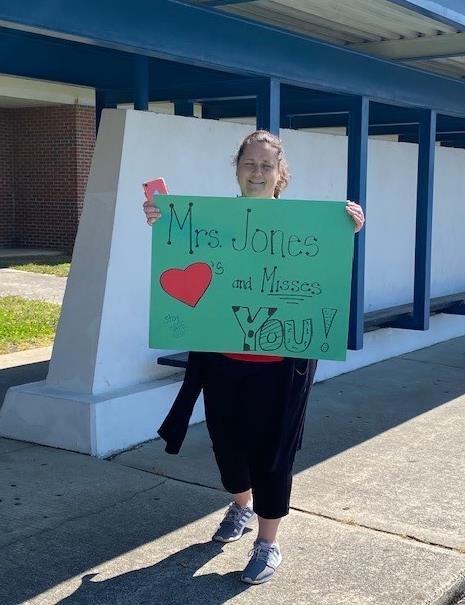 Mrs. Jones
❤'s and Misses
YOU!
stay safe